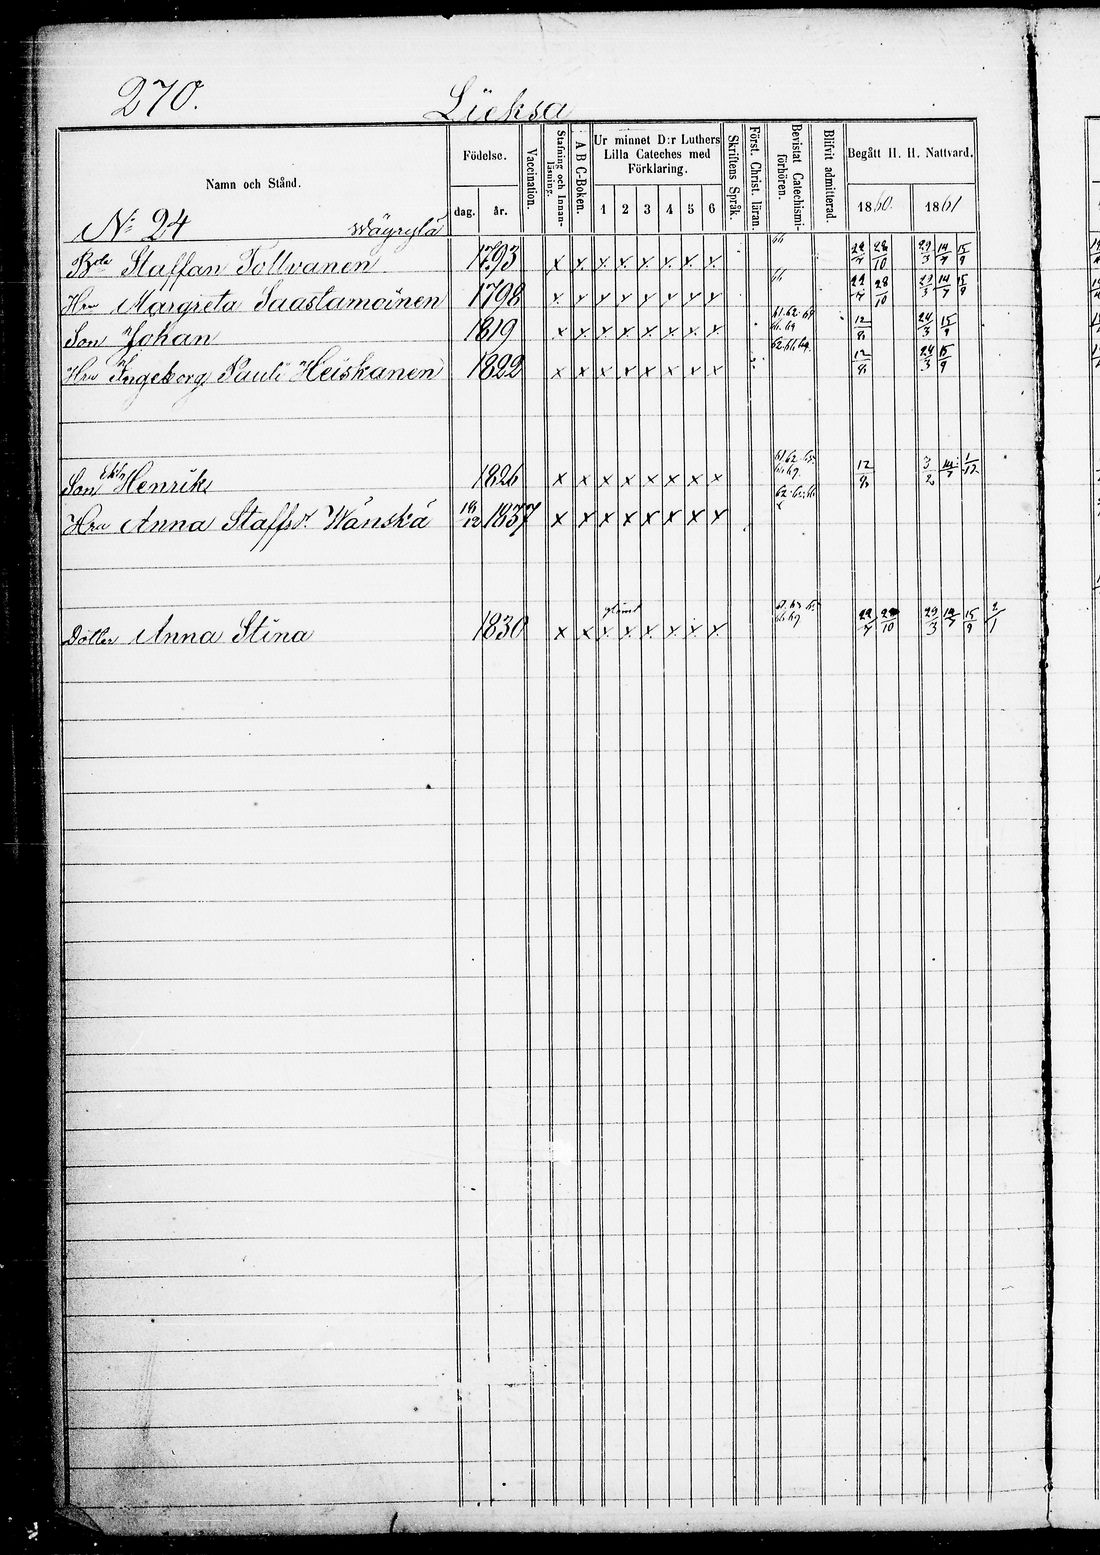 270. Lieksa
Namn och Stånd. Födelse. dag. år. Vaccination. Stafning och Innanläsning. A B C-Boken. Ur minnet D:r Luthers Lilla Cateches med Förklaring. 1 2 3 4 5 6 Skriftens Språk. Först. Christ. läran. Bevistat Catechismiförhören. Blifvit admitterad. Begått H. H. Nattvard. 1860 1861
No 24
Bde Staffan Tolvanen 1793 x x x x x x x x 66 22/7 28/10 29/3 14/7 15/9
Hru Margreta Saastamoinen 1798 x x x x x x x x 66 22/7 28/10 29/3 14/7 15/9
Son Johan 1819 x x x x x x x x 12/8 24/3 15/9
Hru Ingeborg Pauli Heiskanen 1822 x x x x x x x x 12/8 24/3 15/9
Son Henrik 1826 x x x x x x x x 12/8 3/2 14/7 1/12
Hru Anna Staffs Wänskä 1837 x x x x x x x x
Dotter Anna Stina 1830 x x x x x x x x 22/7 28/10 29/3 14/7 15/9 2/1